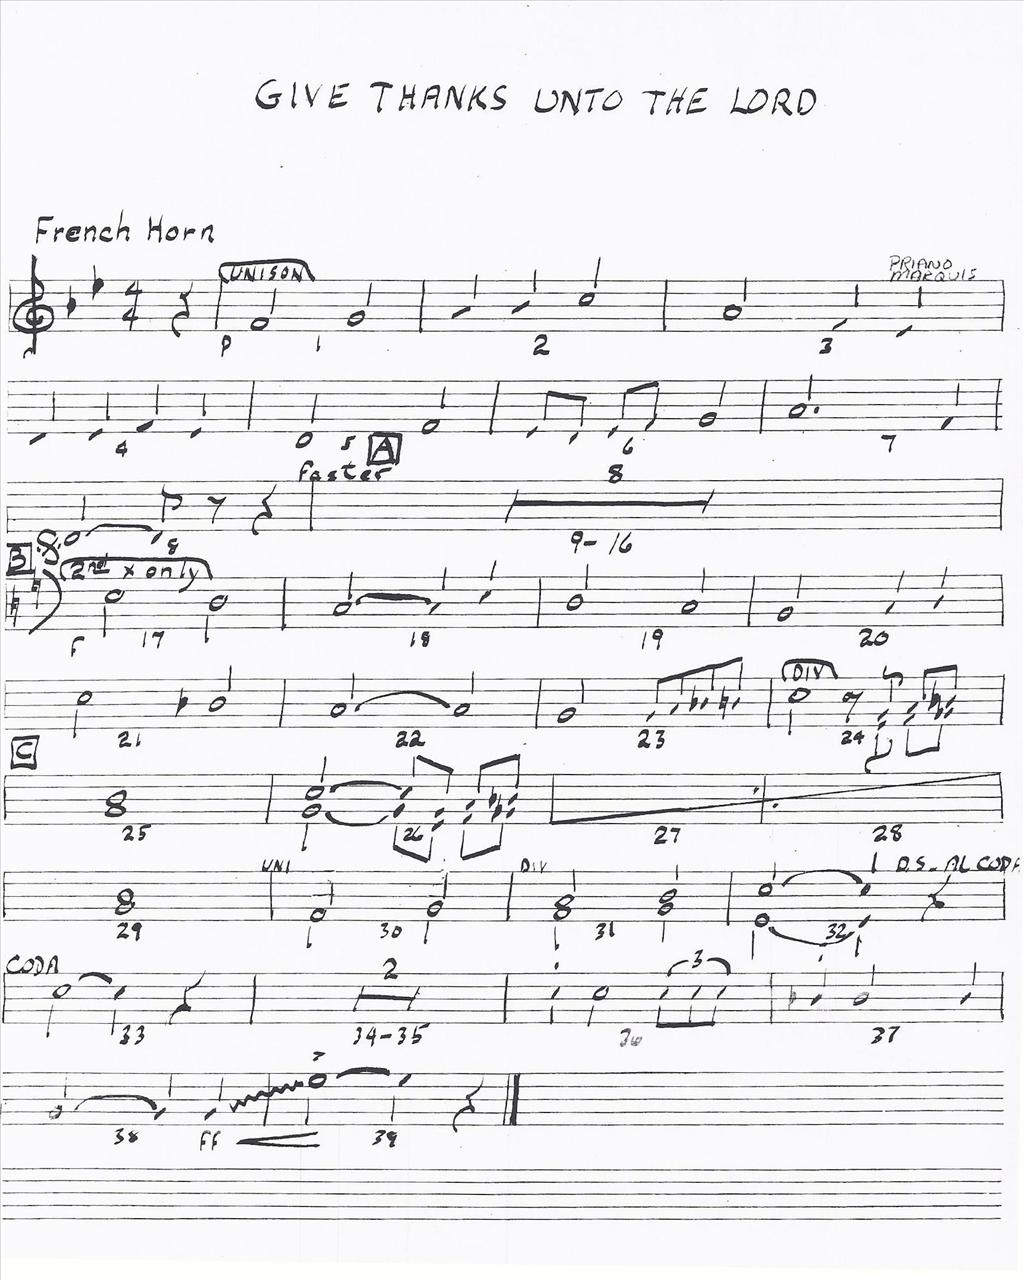 GIVE THANKS UNTO THE LORD
French Horn
PRIANO
MARQUIS
UNISON
4
4
P 1 2 3
4 5 6 7
A
Faster 8
8 9-16
B
2nd x only
F 17 18 19 20
DIV
21 22 23 24
C
25 26 27 28
UNI DIV D.S. AL CODA
29 30 31 32
CODA 2 3
33 34-35 36 37
38 FF 39